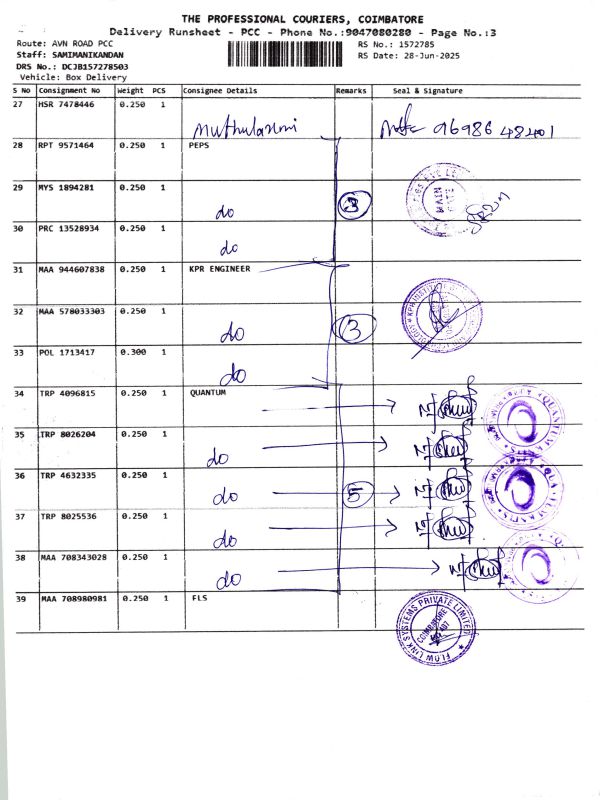 THE PROFESSIONAL COURIERS, COIMBATORE
Delivery Runsheet - PCC - Phone No.:9047080280 - Page No.:3
Route: AVN ROAD PCC RS No.: 1572785
Staff: SAMIMANIKANDAN RS Date: 28-Jun-2025
DRS No.: DCJB157278503
Vehicle: Box Delivery
S No Consignment No Weight PCS Consignee Details Remarks Seal & Signature
27 HSR 7478446 0.250 1
Muthulaxmi 96986 48401
28 RPT 9571464 0.250 1 PEPS
29 MYS 1894281 0.250 1
do 3 MAIN GATE
30 PRC 13528934 0.250 1
do
31 MAA 944607838 0.250 1 KPR ENGINEER
32 MAA 578033303 0.250 1
do 3
33 POL 1713417 0.300 1
do
34 TRP 4096815 0.250 1 QUANTUM
35 TRP 8026204 0.250 1
do
36 TRP 4632335 0.250 1
do 5
37 TRP 8025536 0.250 1
do
38 MAA 708343028 0.250 1
do
39 MAA 708980981 0.250 1 FLS
FLOW LINK SYSTEMS PRIVATE LIMITED
COIMBATORE